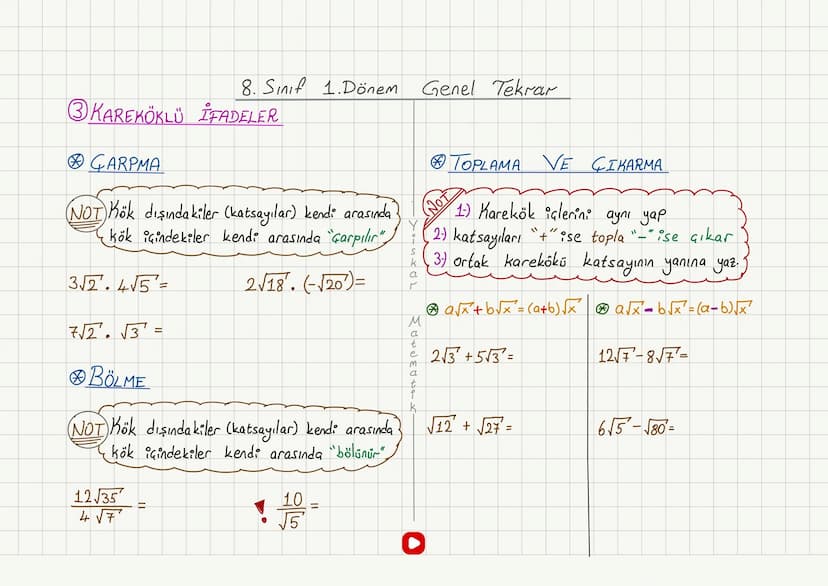 8. Sınıf 1. Dönem Genel Tekrar
③ KAREKÖKLÜ İFADELER
⊛ ÇARPMA
NOT Kök dışındakiler (katsayılar) kendi arasında
kök içindekiler kendi arasında "çarpılır"
3√2 . 4√5 =
2√18 . (-√20) =
7√2 . √3 =
⊛ BÖLME
NOT Kök dışındakiler (katsayılar) kendi arasında
kök içindekiler kendi arasında "bölünür"
12√35 / 4√7 =
! 10 / √5 =
Yiskar Matematik
⊛ TOPLAMA VE ÇIKARMA
NOT
1-) Karekök içlerini aynı yap
2-) katsayıları "+" ise topla "-" ise çıkar
3-) ortak karekökü katsayının yanına yaz.
⊛ a√x + b√x = (a+b)√x
2√3 + 5√3 =
√12 + √27 =
⊛ a√x - b√x = (a-b)√x
12√7 - 8√7 =
6√5 - √80 =